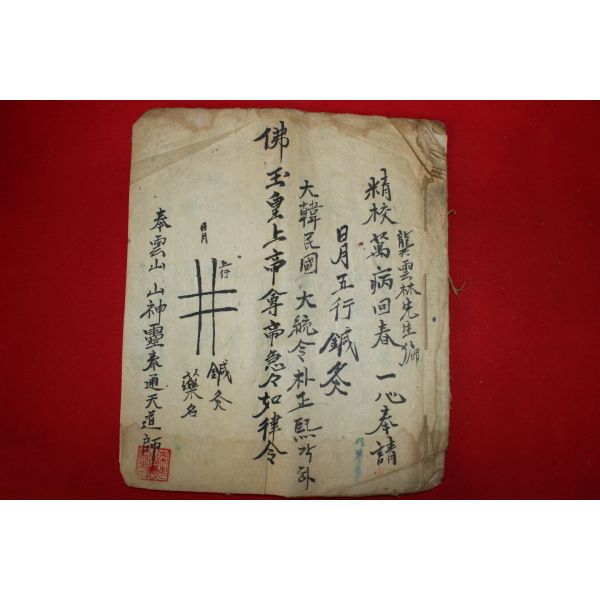 龔雲林先生編
精校萬病回春 一心奉請
日月五行鍼灸
大韓民國 大統令朴正熙각하
佛玉皇上帝尊帝急々如律令
日月
五行
鍼灸
藥名
奉雲山山神靈奉通天道師